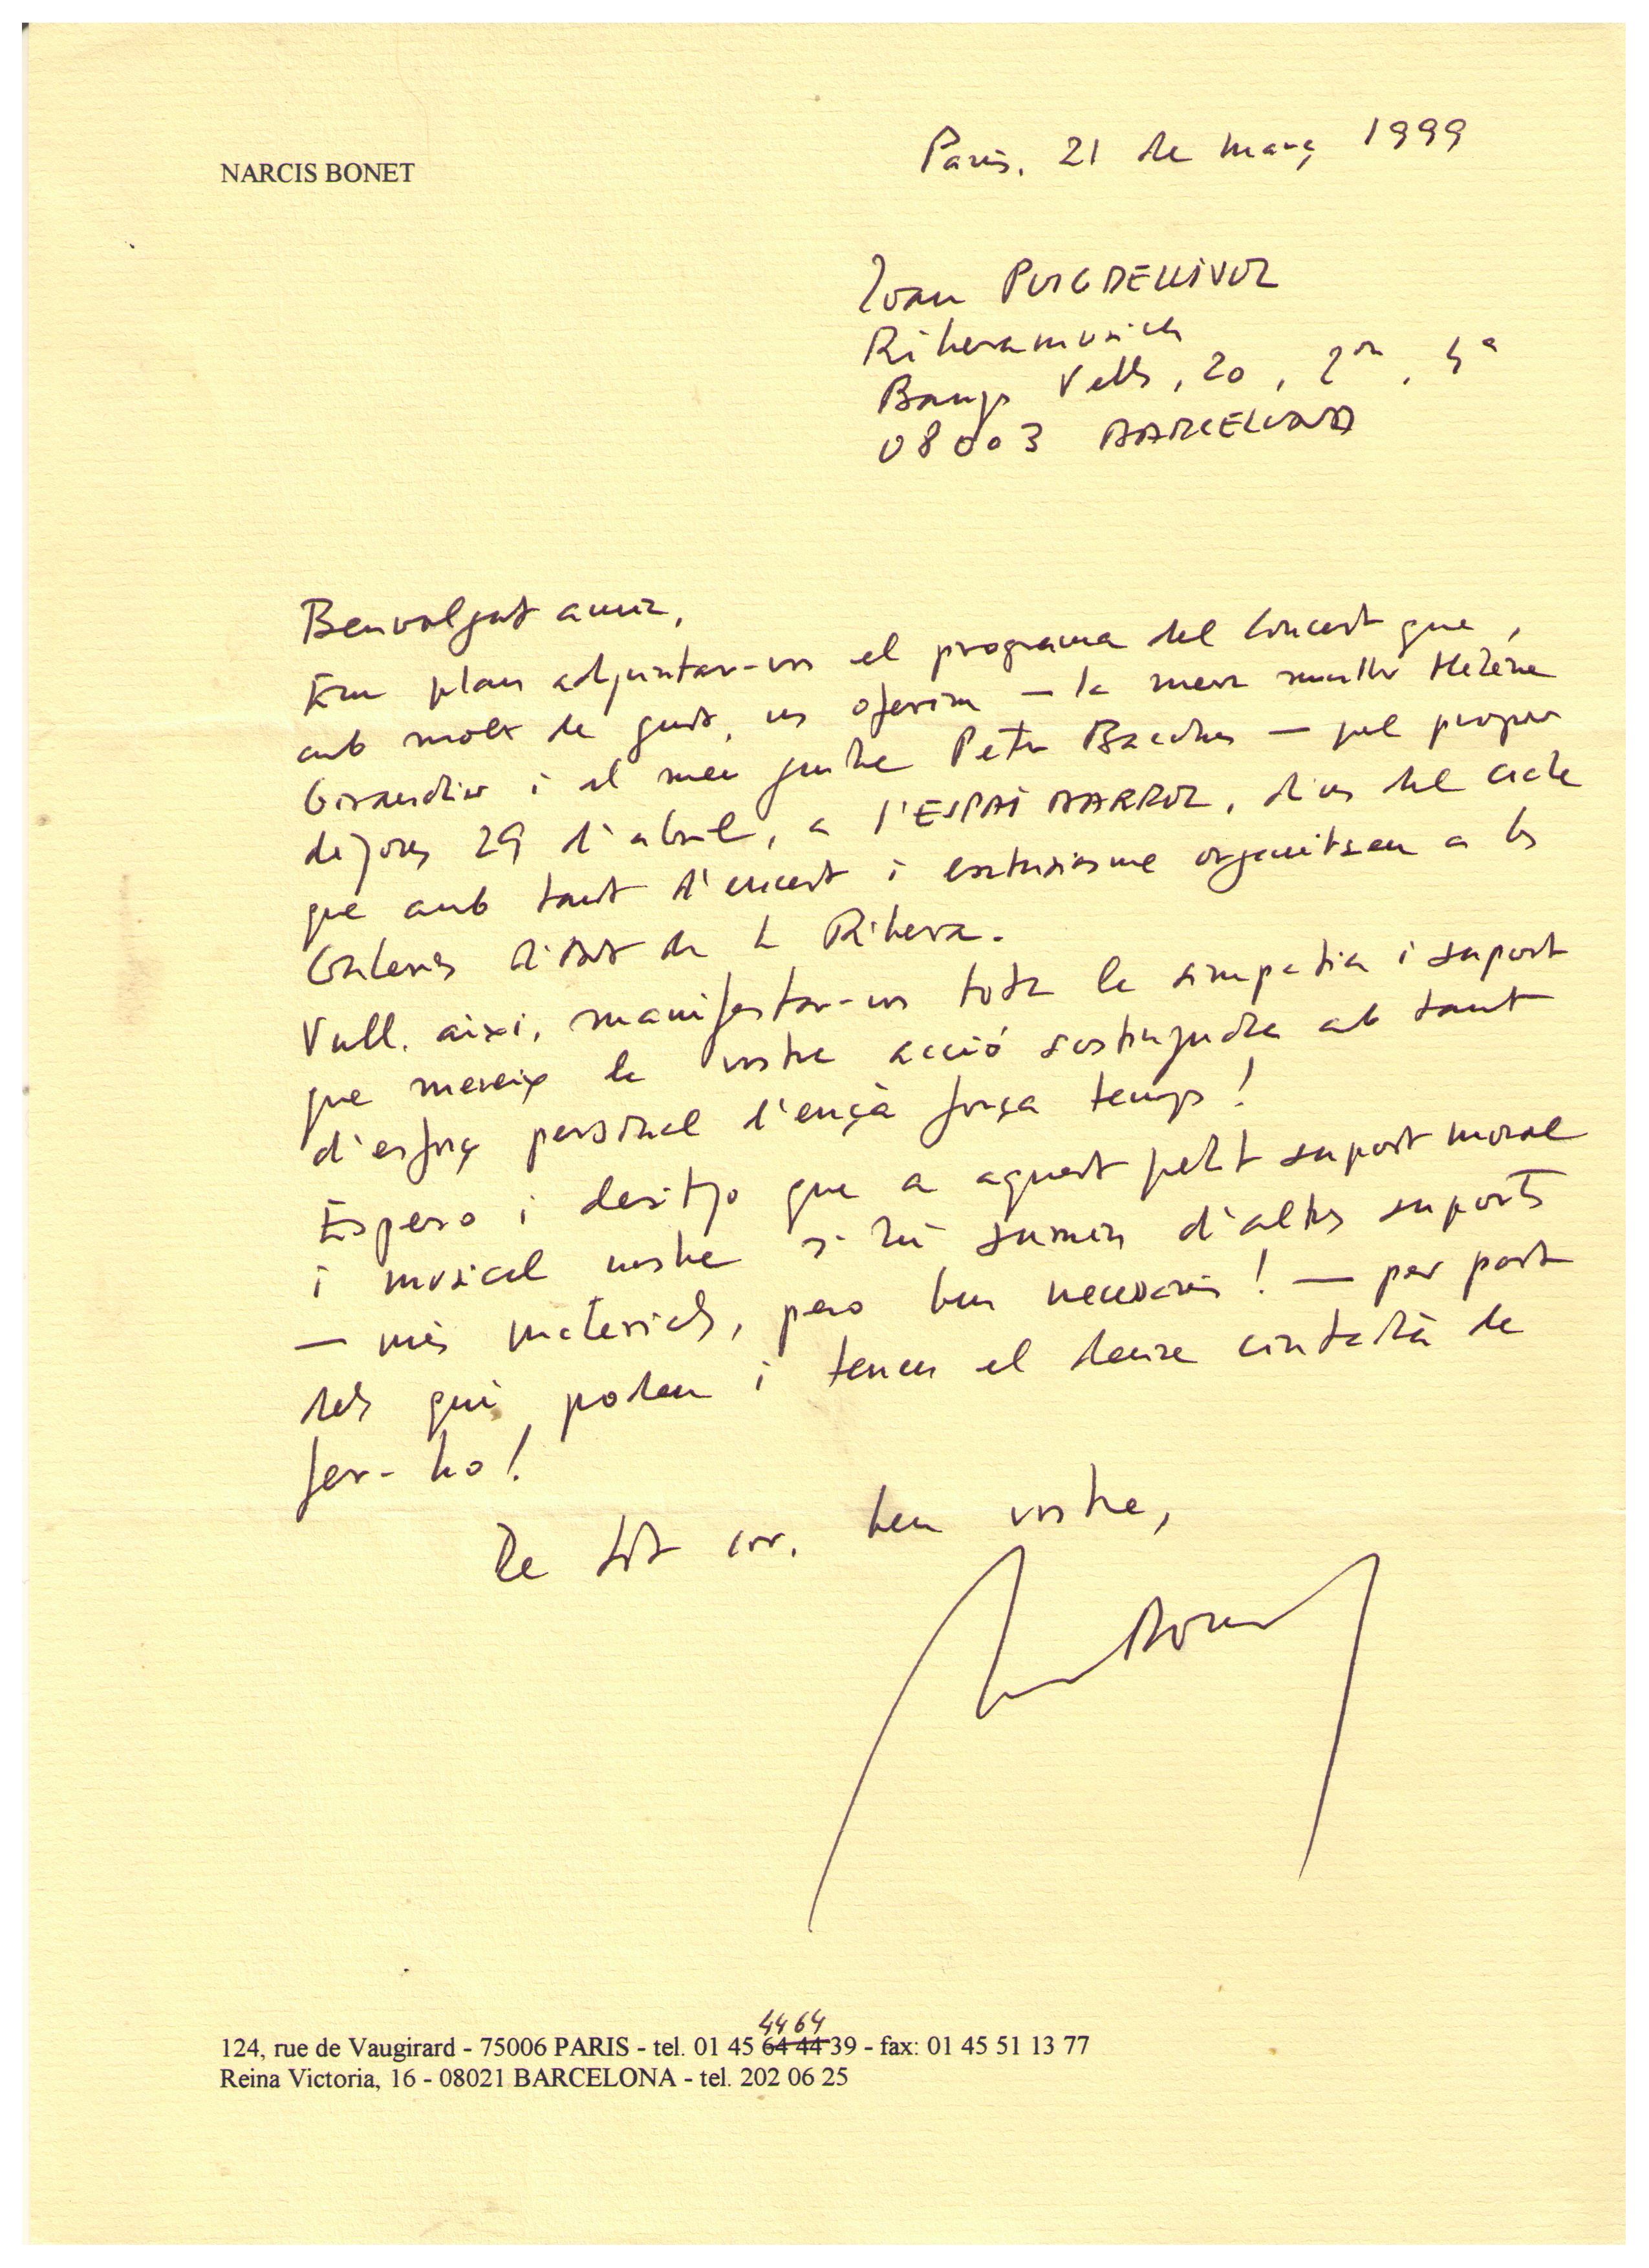 NARCIS BONET
Paris, 21 de març 1999
Joan PUIGDELLIVOL
Riberamusica
Banys Vells, 20, 2on, 4a
08003 BARCELONA
Benvolgut amic,
Em plau adjuntar-vos el programa del Concert que,
amb molt de gust, us oferim — la meva muller Hélène
Giraudier i el meu gendre Petru — pel proper
dijous 29 d'abril, a l'ESPAI BARROC, dins del cicle
que amb tant d'encert i entusiasme organitzeu a les
Galeries d'Art de la Ribera.
Vull, així, manifestar-vos tota la simpatia i suport
que mereix la vostra acció sostinguda amb tant
d'esforç personal d'ençà força temps!
Espero i desitjo que a aquest petit suport moral
i musical nostre s'hi sumin d'altres suports
— més materials, pero ben necessaris! — per part
dels qui poden i tenen el deure ciutadà de
fer-ho!
De tot cor, ben vostre,
Bonet
44 64
124, rue de Vaugirard - 75006 PARIS - tel. 01 45 64 44 39 - fax: 01 45 51 13 77
Reina Victoria, 16 - 08021 BARCELONA - tel. 202 06 25